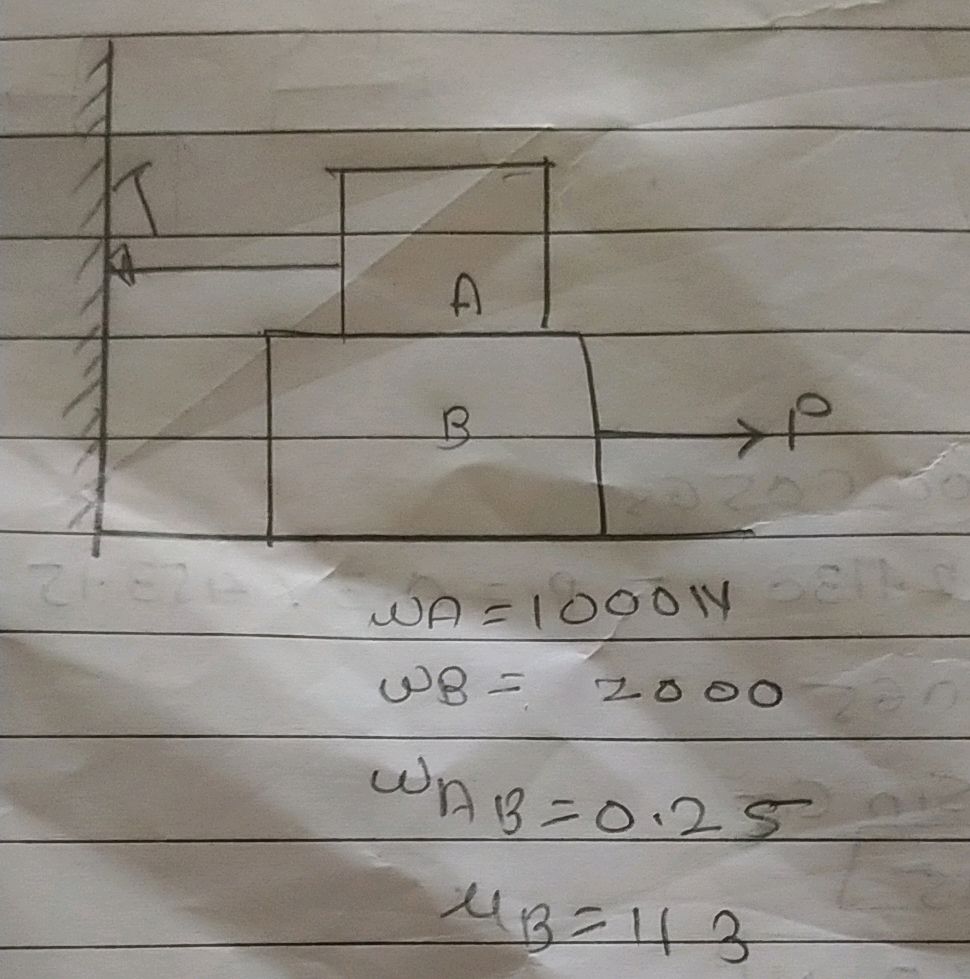 T
A
B
P
WA = 1000N
WB = 2000
WAB = 0.25
μB = 113